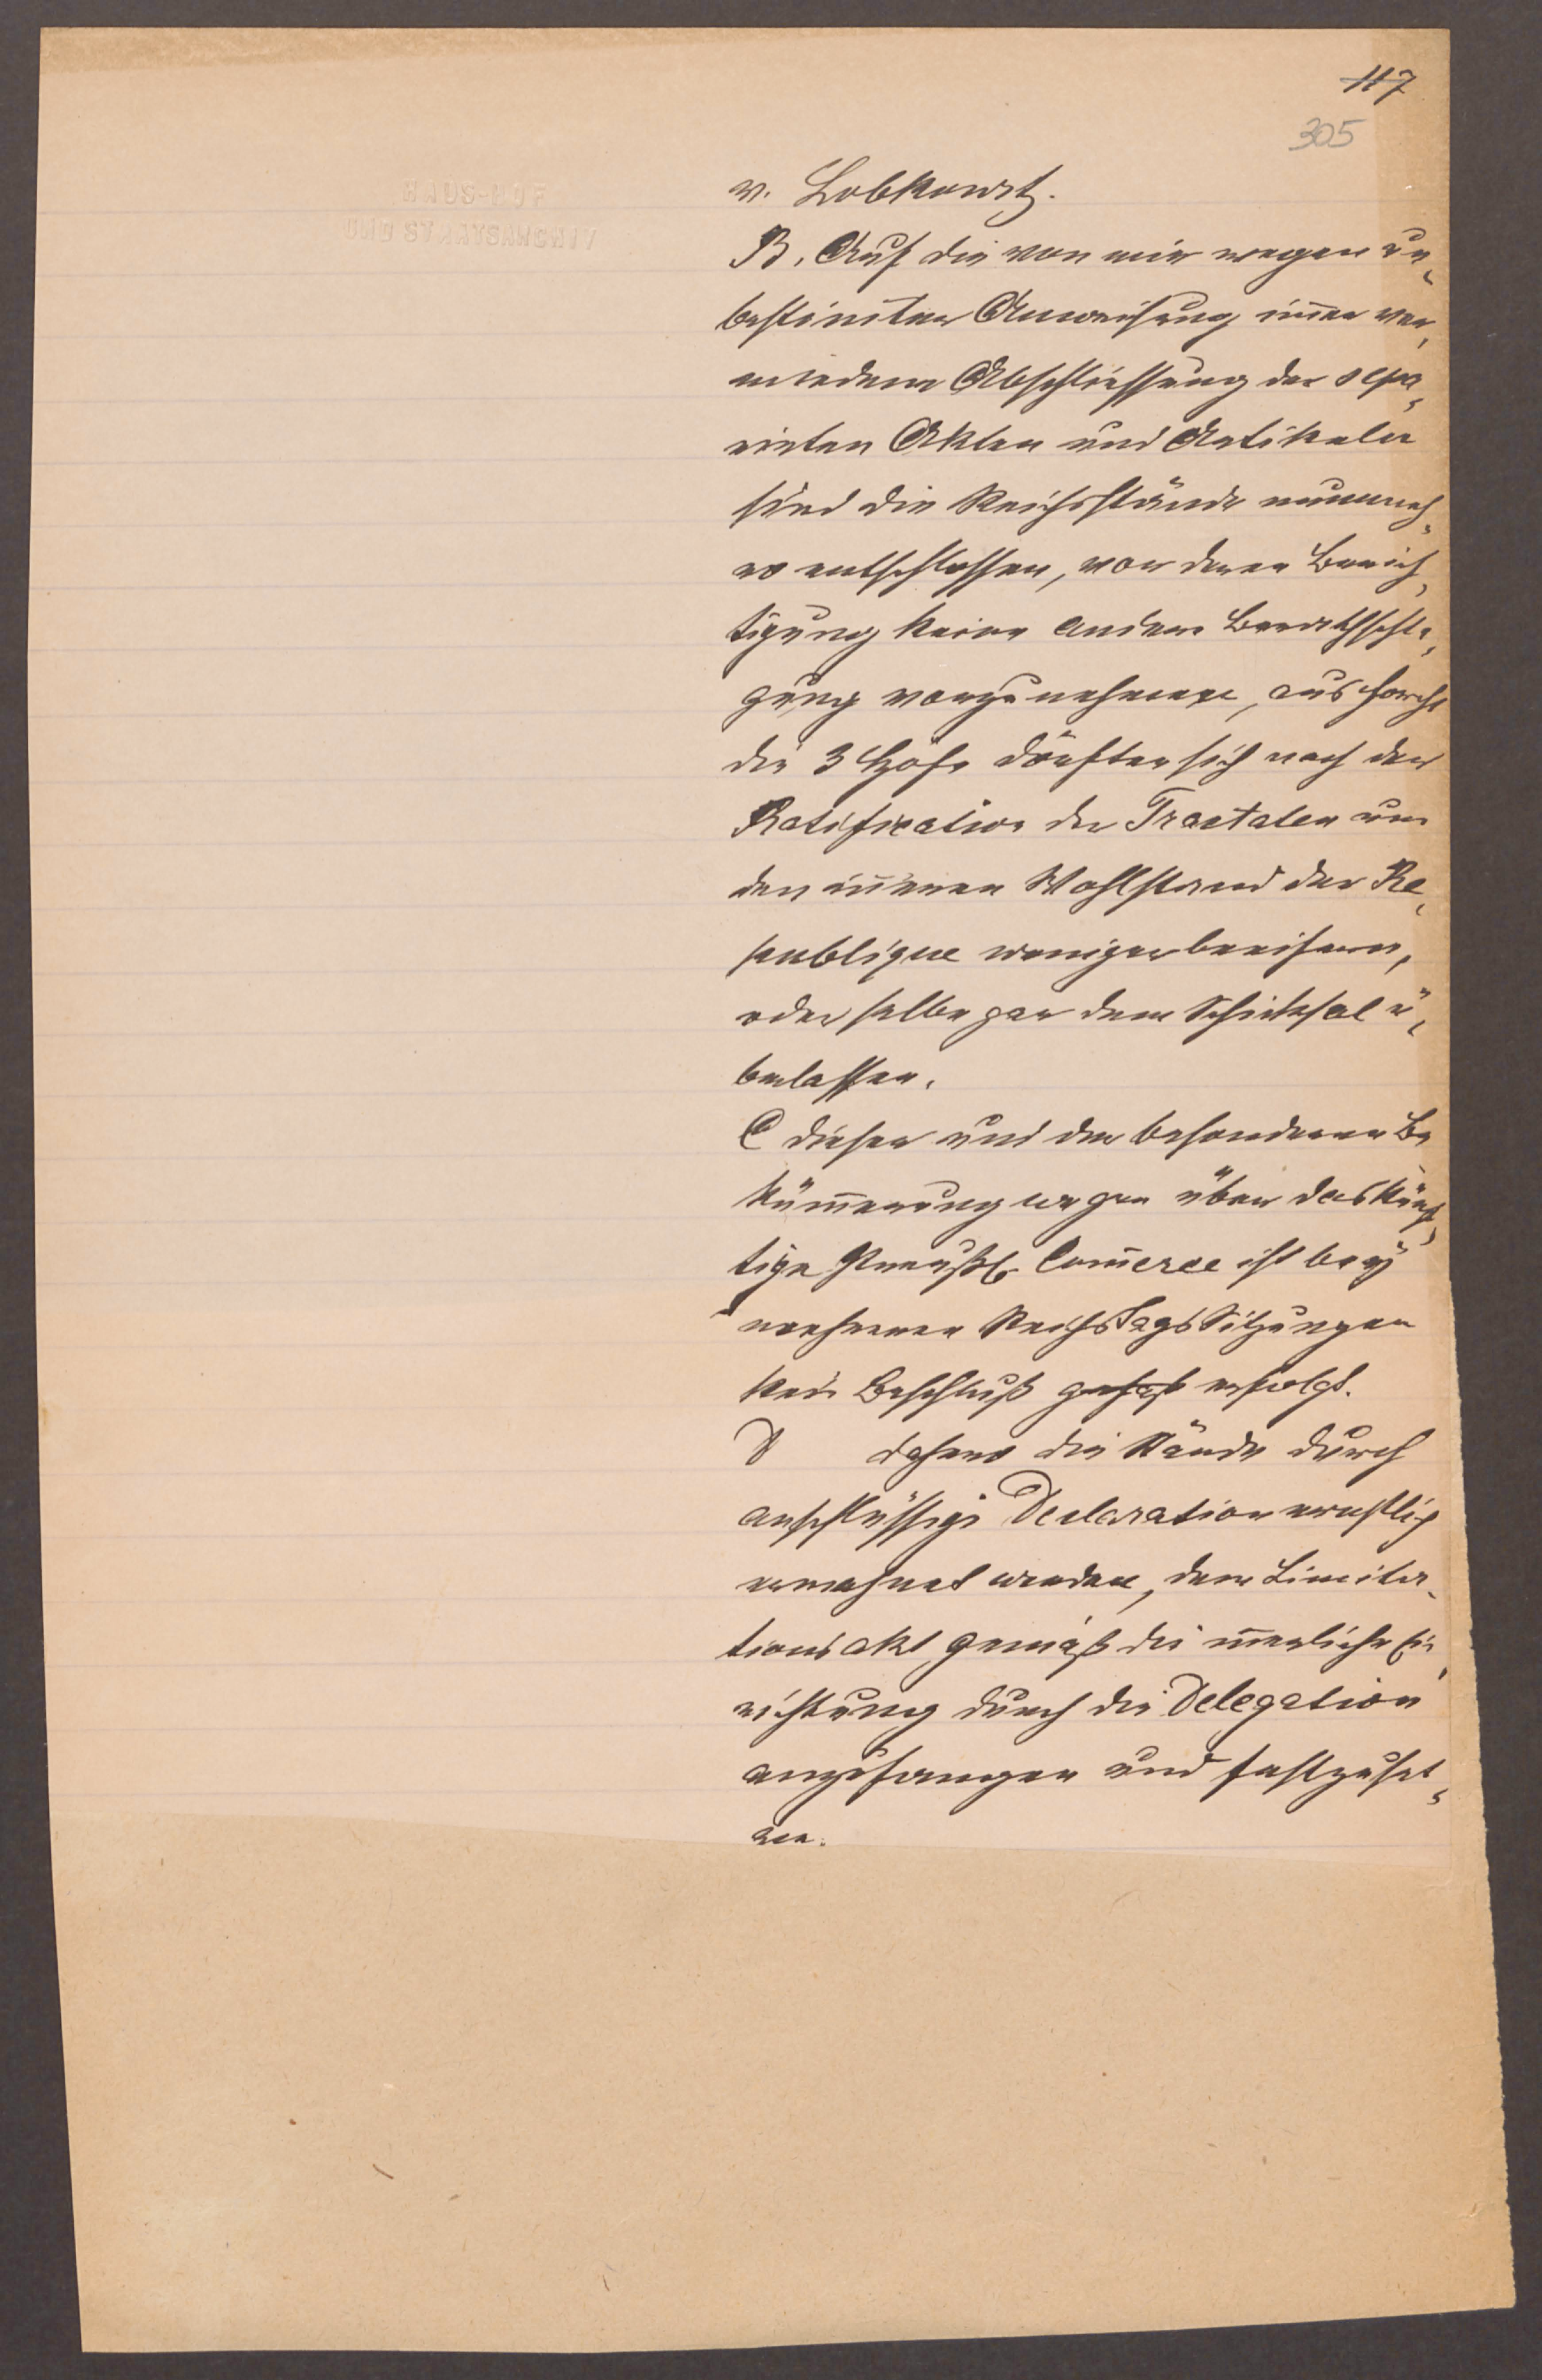 117
305
HAUS-HOF
UND STAATSARCHIV
v. Lobkowitz.
B. Auf die von mir wegen un,
bestimten Anweisung im̄er ver,
miedene Abschliessung der sepa,
rirten Akten und Artikeln
sind die Reichsstände nunmeh,
ro entschlossen, vor deren Berich,
tigung keine andere Berathschla,
gung vorzunehmen, aus Forcht
die 3 Höfe dörften sich nach der
Ratification der Tractaten um
den in̄eren Wohlstand der Re,
publique weniger beeifern,
oder selbe gar dem Schicksal ü,
berlassen.
C dieser und der besonderen Be
küm̄erung wegen über das künf,
tige Preußl. Com̄erce ist bey
mehreren ReichsTagsSitzungen
kein Beschluß gefaßt erfolgt.
D dahero die Stände durch
anschlüssige Declaration ernstlich
ermahnet werden, dem Limita,
tionsakt gemäß die innerliche Ein,
richtung durch die Delegation
anzufangen und festzuset,
zen.